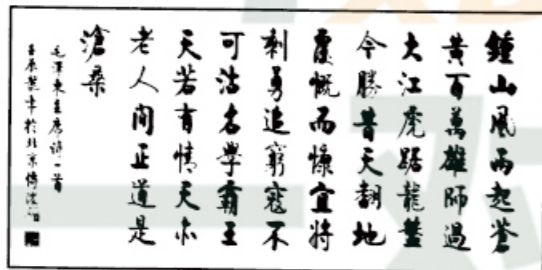 鍾山風雨起蒼
黃百萬雄師過
大江虎踞龍盤
今勝昔天翻地
覆慨而慷宜將
剩勇追窮寇不
可沽名學霸王
天若有情天亦
老人間正道是
滄桑
毛澤東主席詩一首
壬辰年於北京